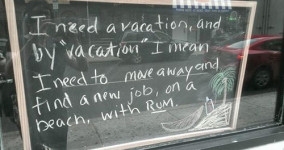 I need a vacation, and
by "vacation" I mean
I need to move away and
find a new job, on a
beach, with Rum.